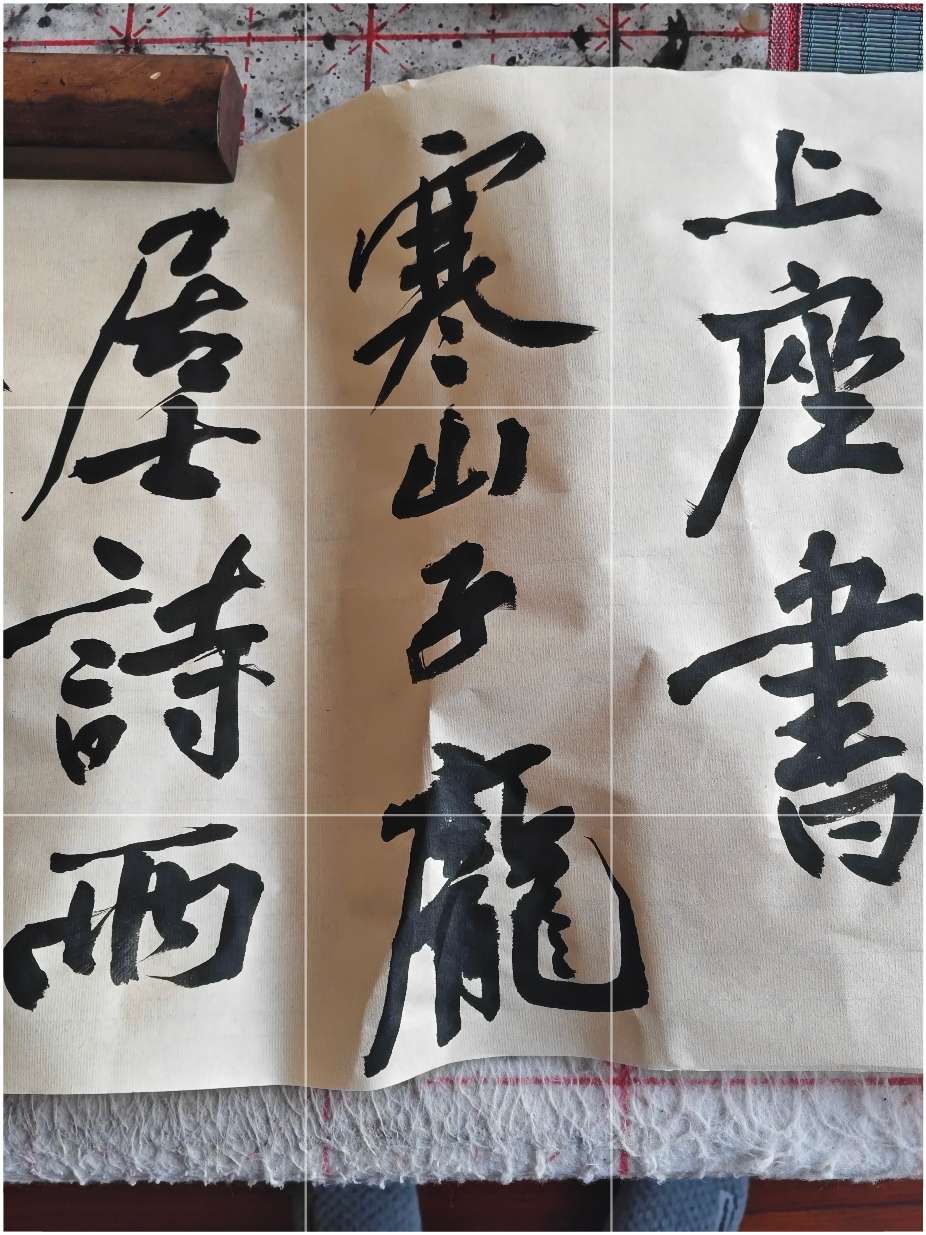 上座書
寒山子龐
居士詩兩